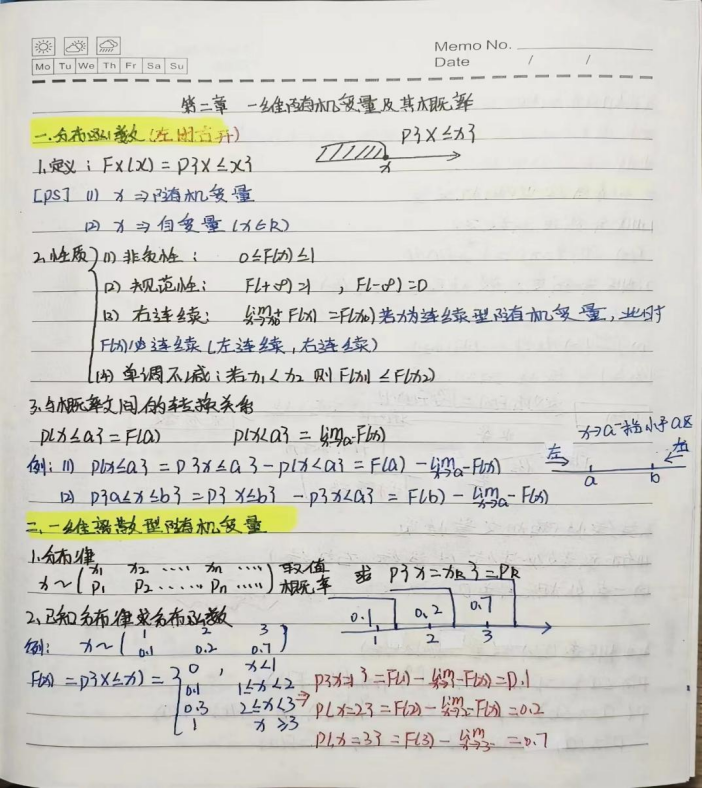 Memo No.
Mo Tu We Th Fr Sa Su
Date / /
第二章 一维随机变量及其概率
一.分布函数(左闭右开)
P{X≤x}
x
1.定义: Fx(x) = P{X≤x}
[PS] (1) x ⇒ 随机变量
(2) x ⇒ 自变量 (x∈R)
2.性质 (1) 非负性: 0≤F(x)≤1
(2) 规范性: F(+∞)=1 , F(-∞)=0
(3) 右连续: lim F(x) = F(x₀) 若x为连续型随机变量, 此时
F(x)必连续(左连续, 右连续)
(4) 单调不减: 若x₁<x₂ 则 F(x₁)≤F(x₂)
3.与概率之间的转换关系
P{x≤a} = F(a) P{x<a} = lim x→a⁻ F(x)
x→a⁻指小于a区
左 右
a b
例: (1) P{x≤a} = P{x≤a} - P{x<a} = F(a) - lim x→a⁻ F(x)
(2) P{a≤x≤b} = P{x≤b} - P{x<a} = F(b) - lim x→a⁻ F(x)
二.一维离散型随机变量
1.分布律
x~( x₁ x₂ ····· xn ···· ) 取值
P₁ P₂ ···· Pn ···· 概率
求 P{x=xk}=Pk
2.已知分布律求分布函数
0.1 0.2 0.7
1 2 3
例: x~( 1 2 3 )
0.1 0.2 0.7
F(x) = P{X≤x} = { 0 , x<1
0.1 1≤x<2
0.3 2≤x<3
1 x≥3
⇒ P{x=1} = F(1) - lim x→1⁻ F(x) = 0.1
P{x=2} = F(2) - lim x→2⁻ F(x) = 0.2
P{x=3} = F(3) - lim x→3⁻ = 0.7